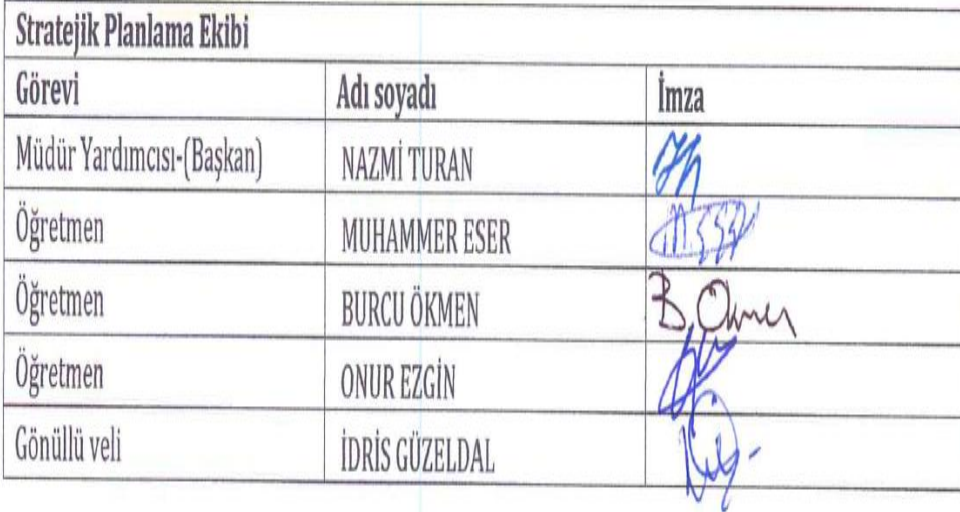 Stratejik Planlama Ekibi
Görevi Adı soyadı İmza
Müdür Yardımcısı-(Başkan) NAZMİ TURAN
Öğretmen MUHAMMER ESER
Öğretmen BURCU ÖKMEN B. Ökmen
Öğretmen ONUR EZGİN
Gönüllü veli İDRİS GÜZELDAL